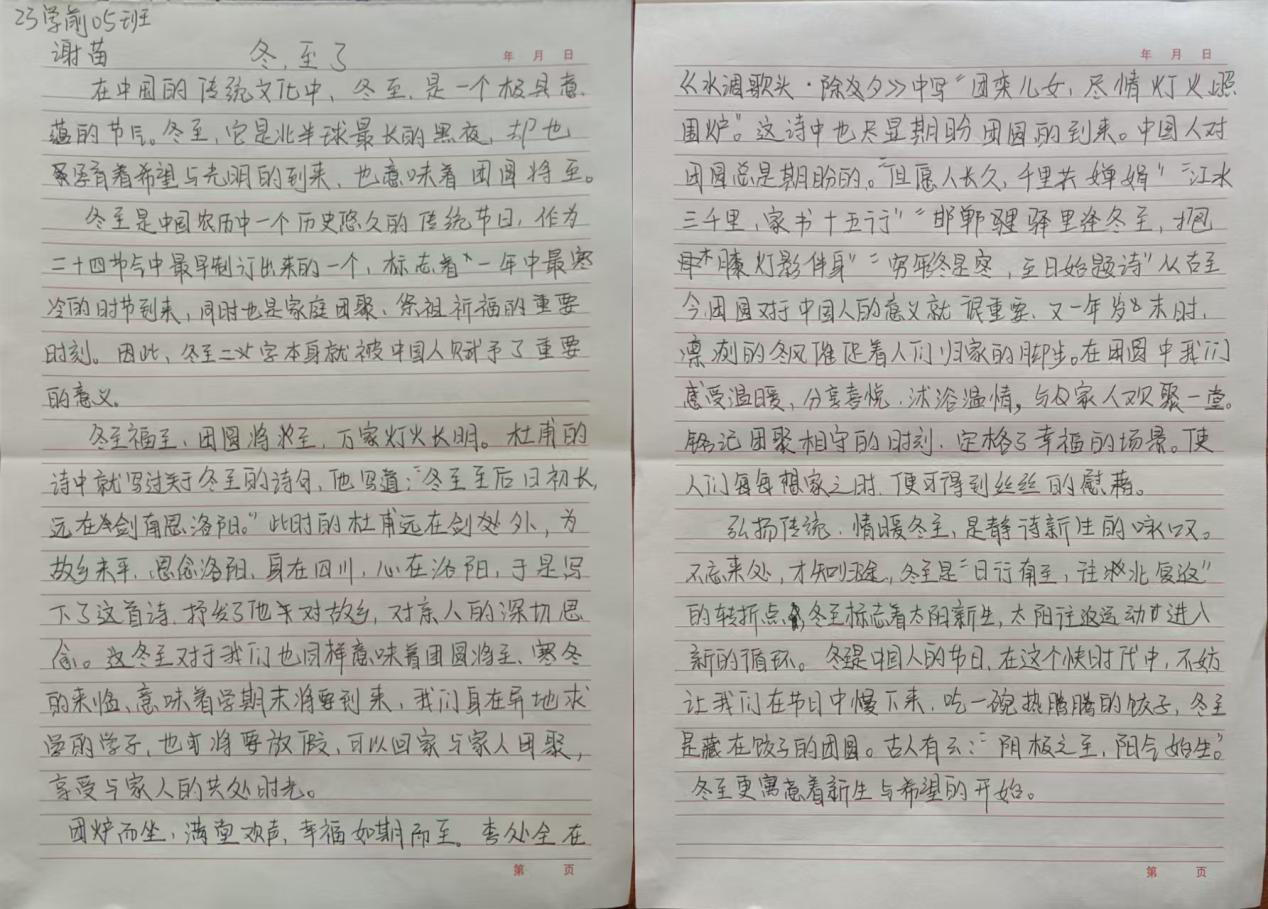 23学前05班
谢苗
冬,至了
年 月 日
在中国的传统文化中,冬至,是一个极具意
蕴的节气。冬至,它是北半球最长的黑夜,却也
孕育着希望与光明的到来,也意味着团圆将至。
冬至是中国农历中一个历史悠久的传统节日,作为
二十四节气中最早制订出来的一个,标志着“一年中最寒
冷的时节到来,同时也是家庭团聚、祭祖祈福的重要
时刻。因此,冬至二字本身就被中国人赋予了重要
的意义。
冬至福至,团圆将至,万家灯火长明。杜甫的
诗中就写过关于冬至的诗句,他写道:“冬至至后日初长,
远在剑南思洛阳。”此时的杜甫远在剑外,为
故乡未平,思念洛阳,身在四川,心在洛阳,于是写
下了这首诗,抒发了他对故乡,对亲人的深切思
念。这冬至对于我们也同样意味着团圆将至、寒冬
的来临、意味着学期末将要到来,我们身在异地求
学的学子,也将要放假,可以回家与家人团聚,
享受与家人的共处时光。
团炉而坐,满堂欢声,幸福如期而至。李处全在
第 页
年 月 日
《水调歌头·除夕》中写“团栾儿女,尽情灯火照
围炉”。这诗中也尽显期盼团圆的到来。中国人对
团圆总是期盼的。“但愿人长久,千里共婵娟”“江水
三千里,家书十五行”“邯郸驿里逢冬至,抱
膝灯影伴身”“穷年冬是寒,至日始题诗”从古至
今,团圆对于中国人的意义就很重要,又一年岁末时,
凛冽的冬风催促着人们归家的脚步。在团圆中我们
感受温暖,分享喜悦,沐浴温情,与家人欢聚一堂。
铭记团聚相守的时刻,定格了幸福的场景。使
人们每每想家之时,便可得到丝丝的慰藉。
弘扬传统,情暖冬至,是静待新生的咏叹。
不忘来处,才知归途,冬至是“日行南至,往北复返”
的转折点,冬至标志着太阳新生,太阳往返运动进入
新的循环。冬至是中国人的节日,在这个快时代中,不妨
让我们在节日中慢下来,吃一碗热腾腾的饺子,冬至
是藏在饺子的团圆。古人有云:“阴极之至,阳气始生。”
冬至更寓意着新生与希望的开始。
第 页